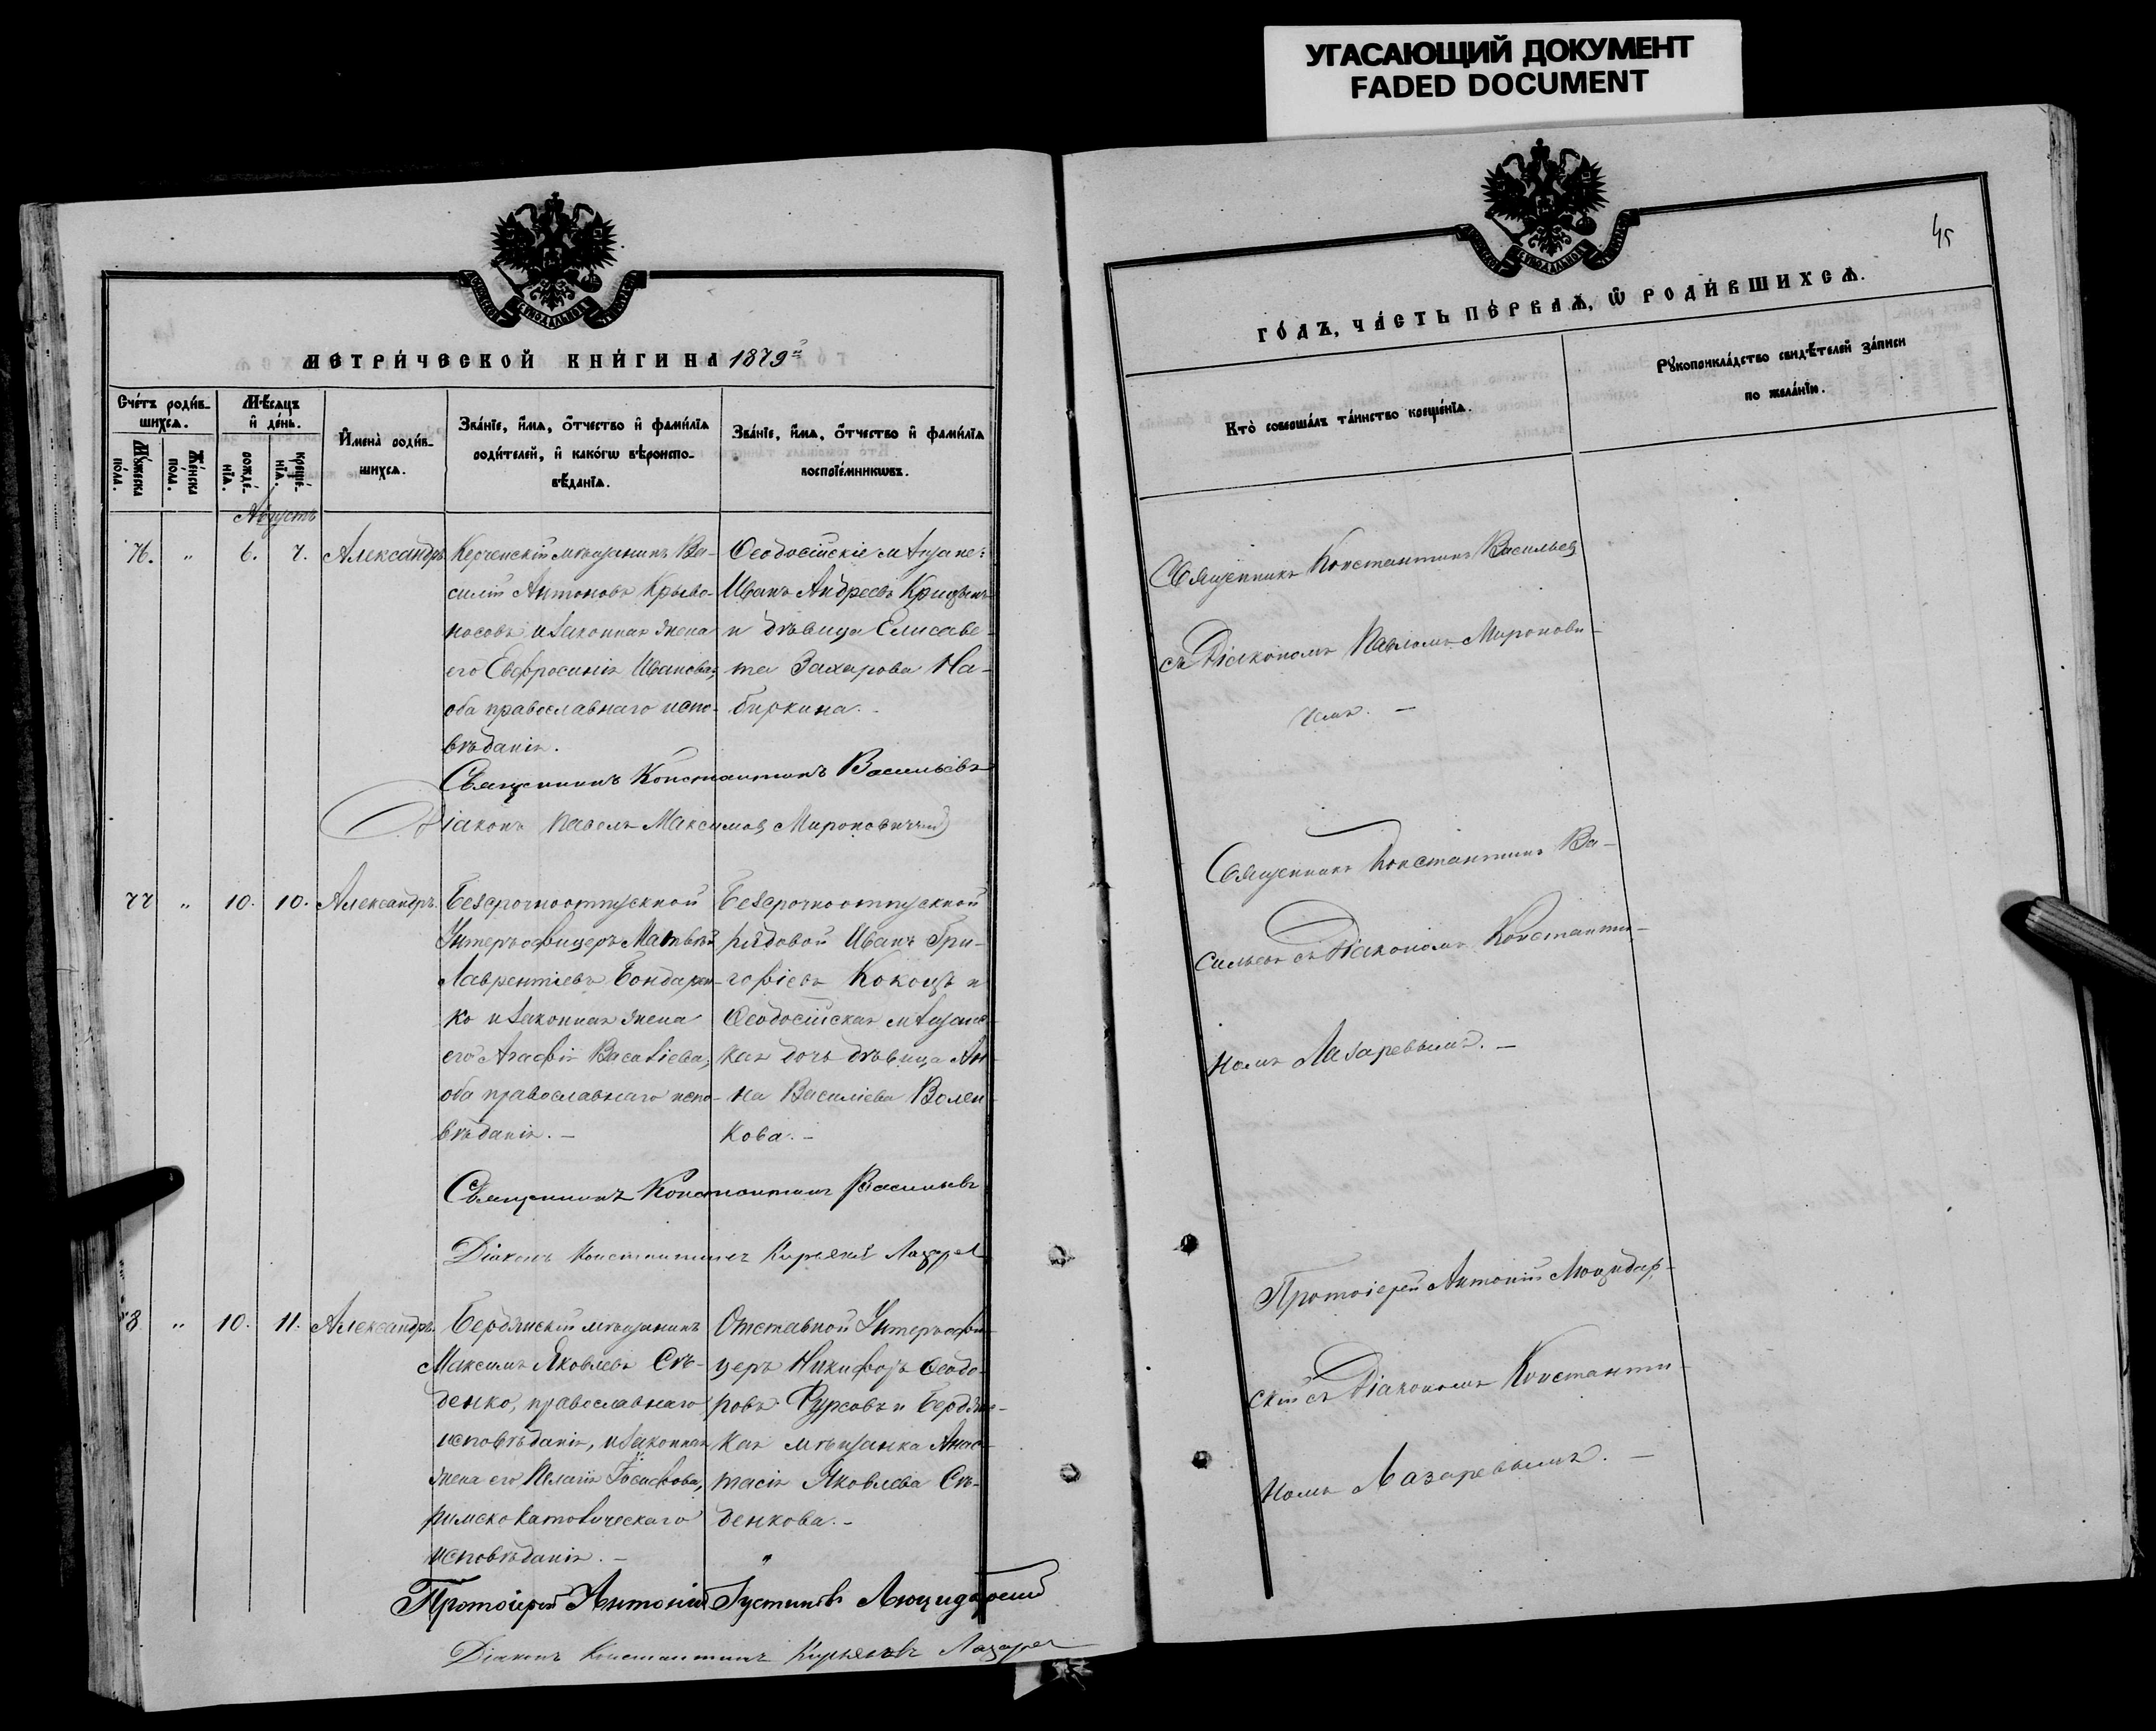 УГАСАЮЩИЙ ДОКУМЕНТ
FADED DOCUMENT
МЕТРИ́ЧЕСКОЙ КНИ́ГИ НА 1879й
Счéтъ роди́в-
шихсѧ.
Мꙋ́жеска пóла.
Жéнска пóла.
Мѣ́сѧцъ
и҆ дéнь.
рождé-
нїѧ.
крещé-
нїѧ.
И҆мена̀ роди́в-
шихсѧ.
Звáнїе, и҆́мѧ, ѻ҆́тчество и҆ фами́лїѧ
роди́телей, и҆ какóгѡ вѣроиспо-
вѣ́данїѧ.
Звáнїе, и҆́мѧ, ѻ҆́тчество и҆ фами́лїѧ
воспрїéмникѡвъ.
Августъ
76. „ 6. 7. Александръ
Керченскій мѣщанинъ Ва-
силій Антоновъ Криво-
носовъ, и законная жена
его Евфросинія Иванова,
оба православнаго испо-
вѣданія.
Ѳеодосійскіе мѣщане:
Иванъ Андреевъ
и дѣвица Елисаве-
та Захарова На-
биркина.
Священникъ Константинъ Васильевъ
Діаконъ Павелъ Максимовъ Мироновичъ
77 „ 10. 10. Александръ.
Безсрочноотпускной
Унтеръ офицеръ Матвѣй
Лаврентіевъ Бондарен-
ко и законная жена
его Агафія Василіева,
оба православнаго испо-
вѣданія. –
Безсрочноотпускной
рядовой Иванъ Гри-
горіевъ Кокощъ и
Ѳеодосійская мѣщанс-
кая дочь дѣвица Ан-
на Василіева Волен-
кова. –
Священникъ Константинъ Васильевъ
Діаконъ Константинъ Лазарев
78 „ 10. 11. Александръ.
Бердянскій мѣщанинъ
Максимъ Яковлевъ Сѣ-
денко, православнаго
исповѣданія, и законная
жена его Пелагія Іосифова,
римско католическаго
исповѣданія. –
Отставной Унтеръ офи-
церъ Никифоръ Ѳеодо-
ровъ Фурсовъ и Бердянс-
кая мѣщанка Анас-
тасія Яковлева Сѣ-
денкова. –
„
Протоіерей Антоній Іустиновъ Люцидарскій
Діаконъ Константинъ Лазарев
45
ГÓДЪ, ЧÁСТЬ ПÉРВАѦ, Ѡ҆ РОДИ́ВШИХСѦ.
Ктò совершáлъ тáинство крещéнїѧ.
Рꙋкоприклáдство свидѣ́телей зáписи
по желáнїю.
Священникъ Константинъ Васильевъ
съ Діакономъ Павломъ Миронови-
чемъ. –
Священникъ Константинъ Ва-
сильевъ съ Діакономъ Константи-
номъ Лазаревымъ. –
Протоіерей Антоній Люцидар-
скій съ Діакономъ Константи-
номъ Лазаревымъ. –